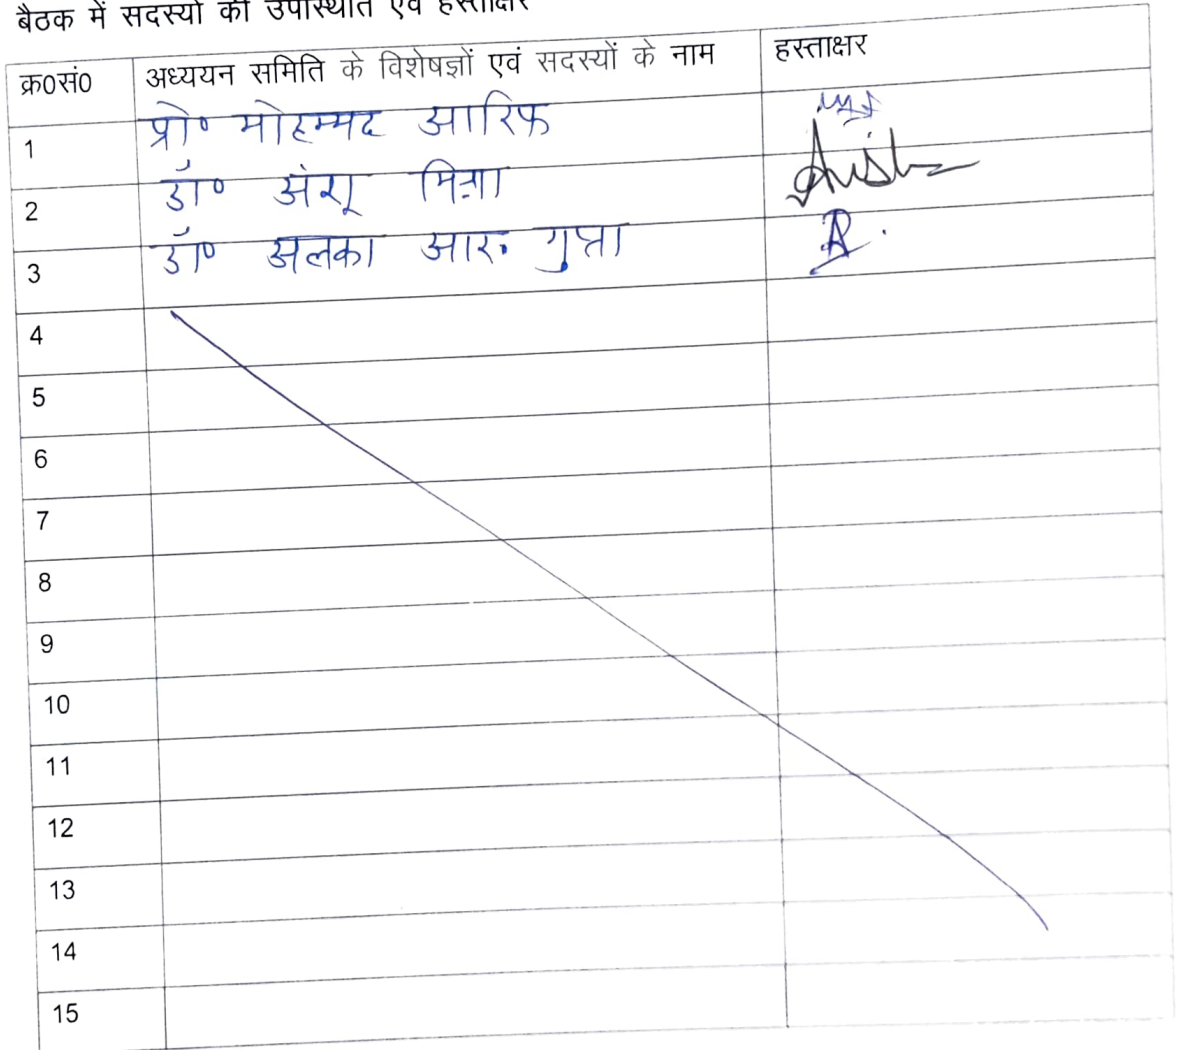 बैठक में सदस्यों की उपस्थिति एवं हस्ताक्षर
क्र०सं० अध्ययन समिति के विशेषज्ञों एवं सदस्यों के नाम हस्ताक्षर
1 प्रो० मोहम्मद आरिफ
2 डॉ० अंशू मिश्रा
3 डॉ० अलका आर. गुप्ता
4
5
6
7
8
9
10
11
12
13
14
15